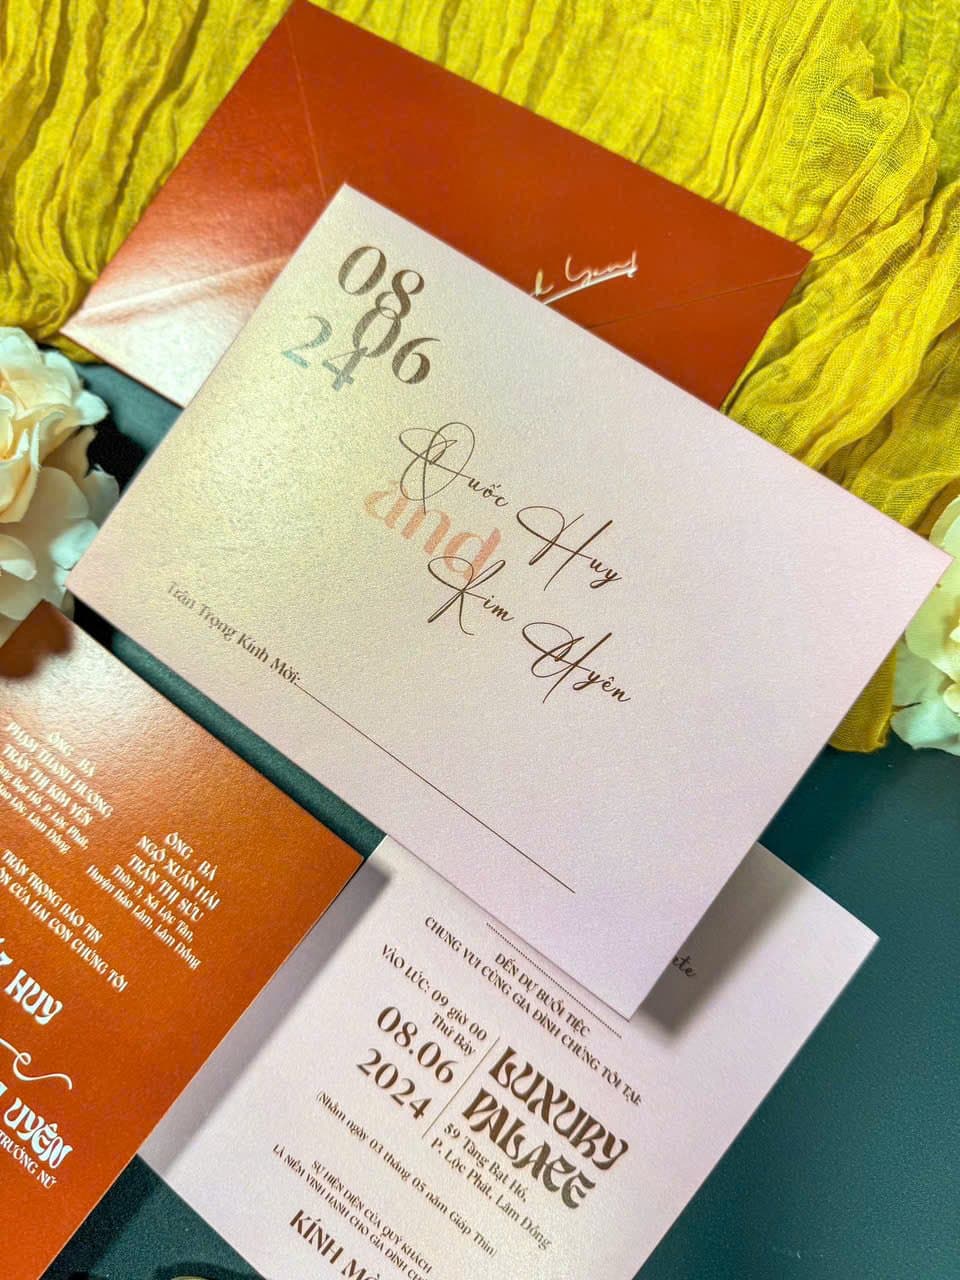 08
06
24
Quốc Huy
and
Kim Uyên
Trân Trọng Kính Mời:
ÔNG BÀ
PHẠM THANH HƯƠNG
TRẦN THỊ KIM YẾN
Tăng Bạt Hổ, P. Lộc Phát,
Bảo Lộc, Lâm Đồng
ÔNG BÀ
NGÔ XUÂN HẢI
TRẦN THỊ SỬU
Thôn 3, Xã Lộc Tân,
Huyện Bảo Lâm, Lâm Đồng
TRÂN TRỌNG BÁO TIN
CỦA HAI CON CHÚNG TÔI
HUY
UYÊN
TRƯỞNG NỮ
ĐẾN DỰ BUỔI TIỆC
CHUNG VUI CÙNG GIA ĐÌNH CHÚNG TÔI TẠI:
VÀO LÚC: 09 giờ 00
Thứ Bảy
08.06
2024
LUXURY
PALACE
59 Tăng Bạt Hổ,
P. Lộc Phát, Lâm Đồng
(Nhằm ngày 03 tháng 05 năm Giáp Thìn)
SỰ HIỆN DIỆN CỦA QUÝ KHÁCH
LÀ NIỀM VINH HẠNH CHO GIA ĐÌNH
KÍNH